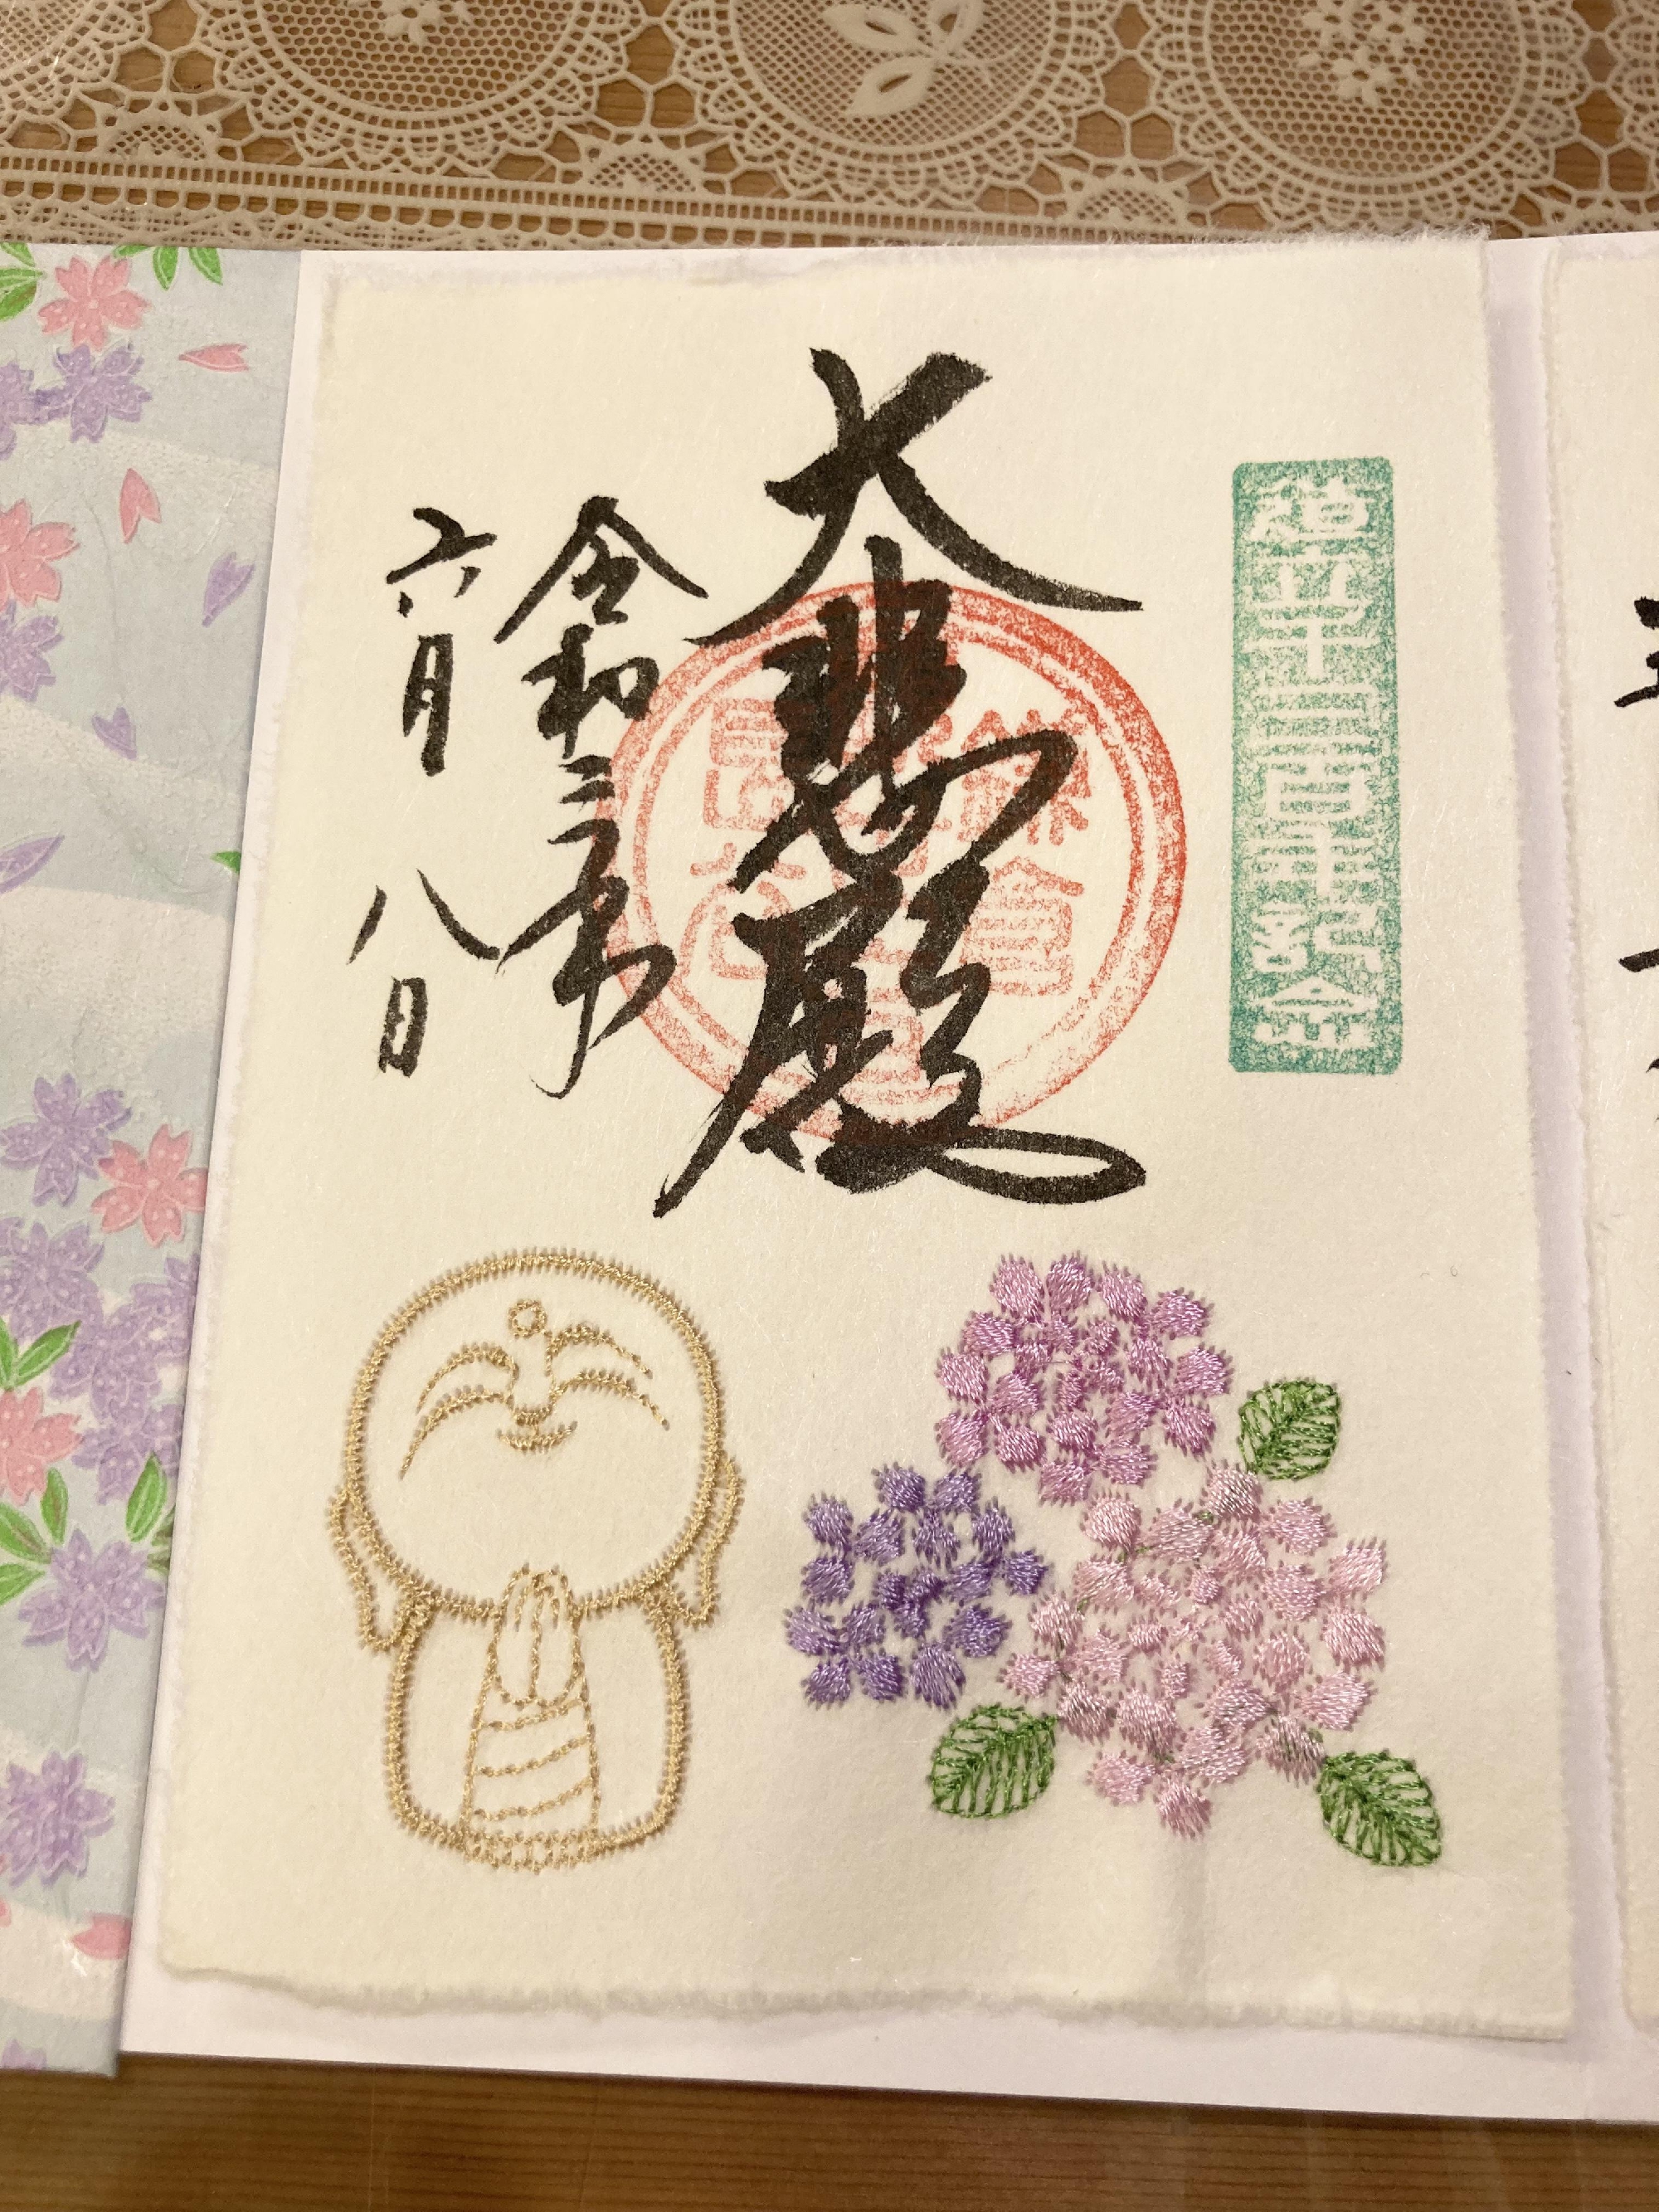 造立千三百年記念
大悲殿
鎌倉
長谷
令和三年
六月八日